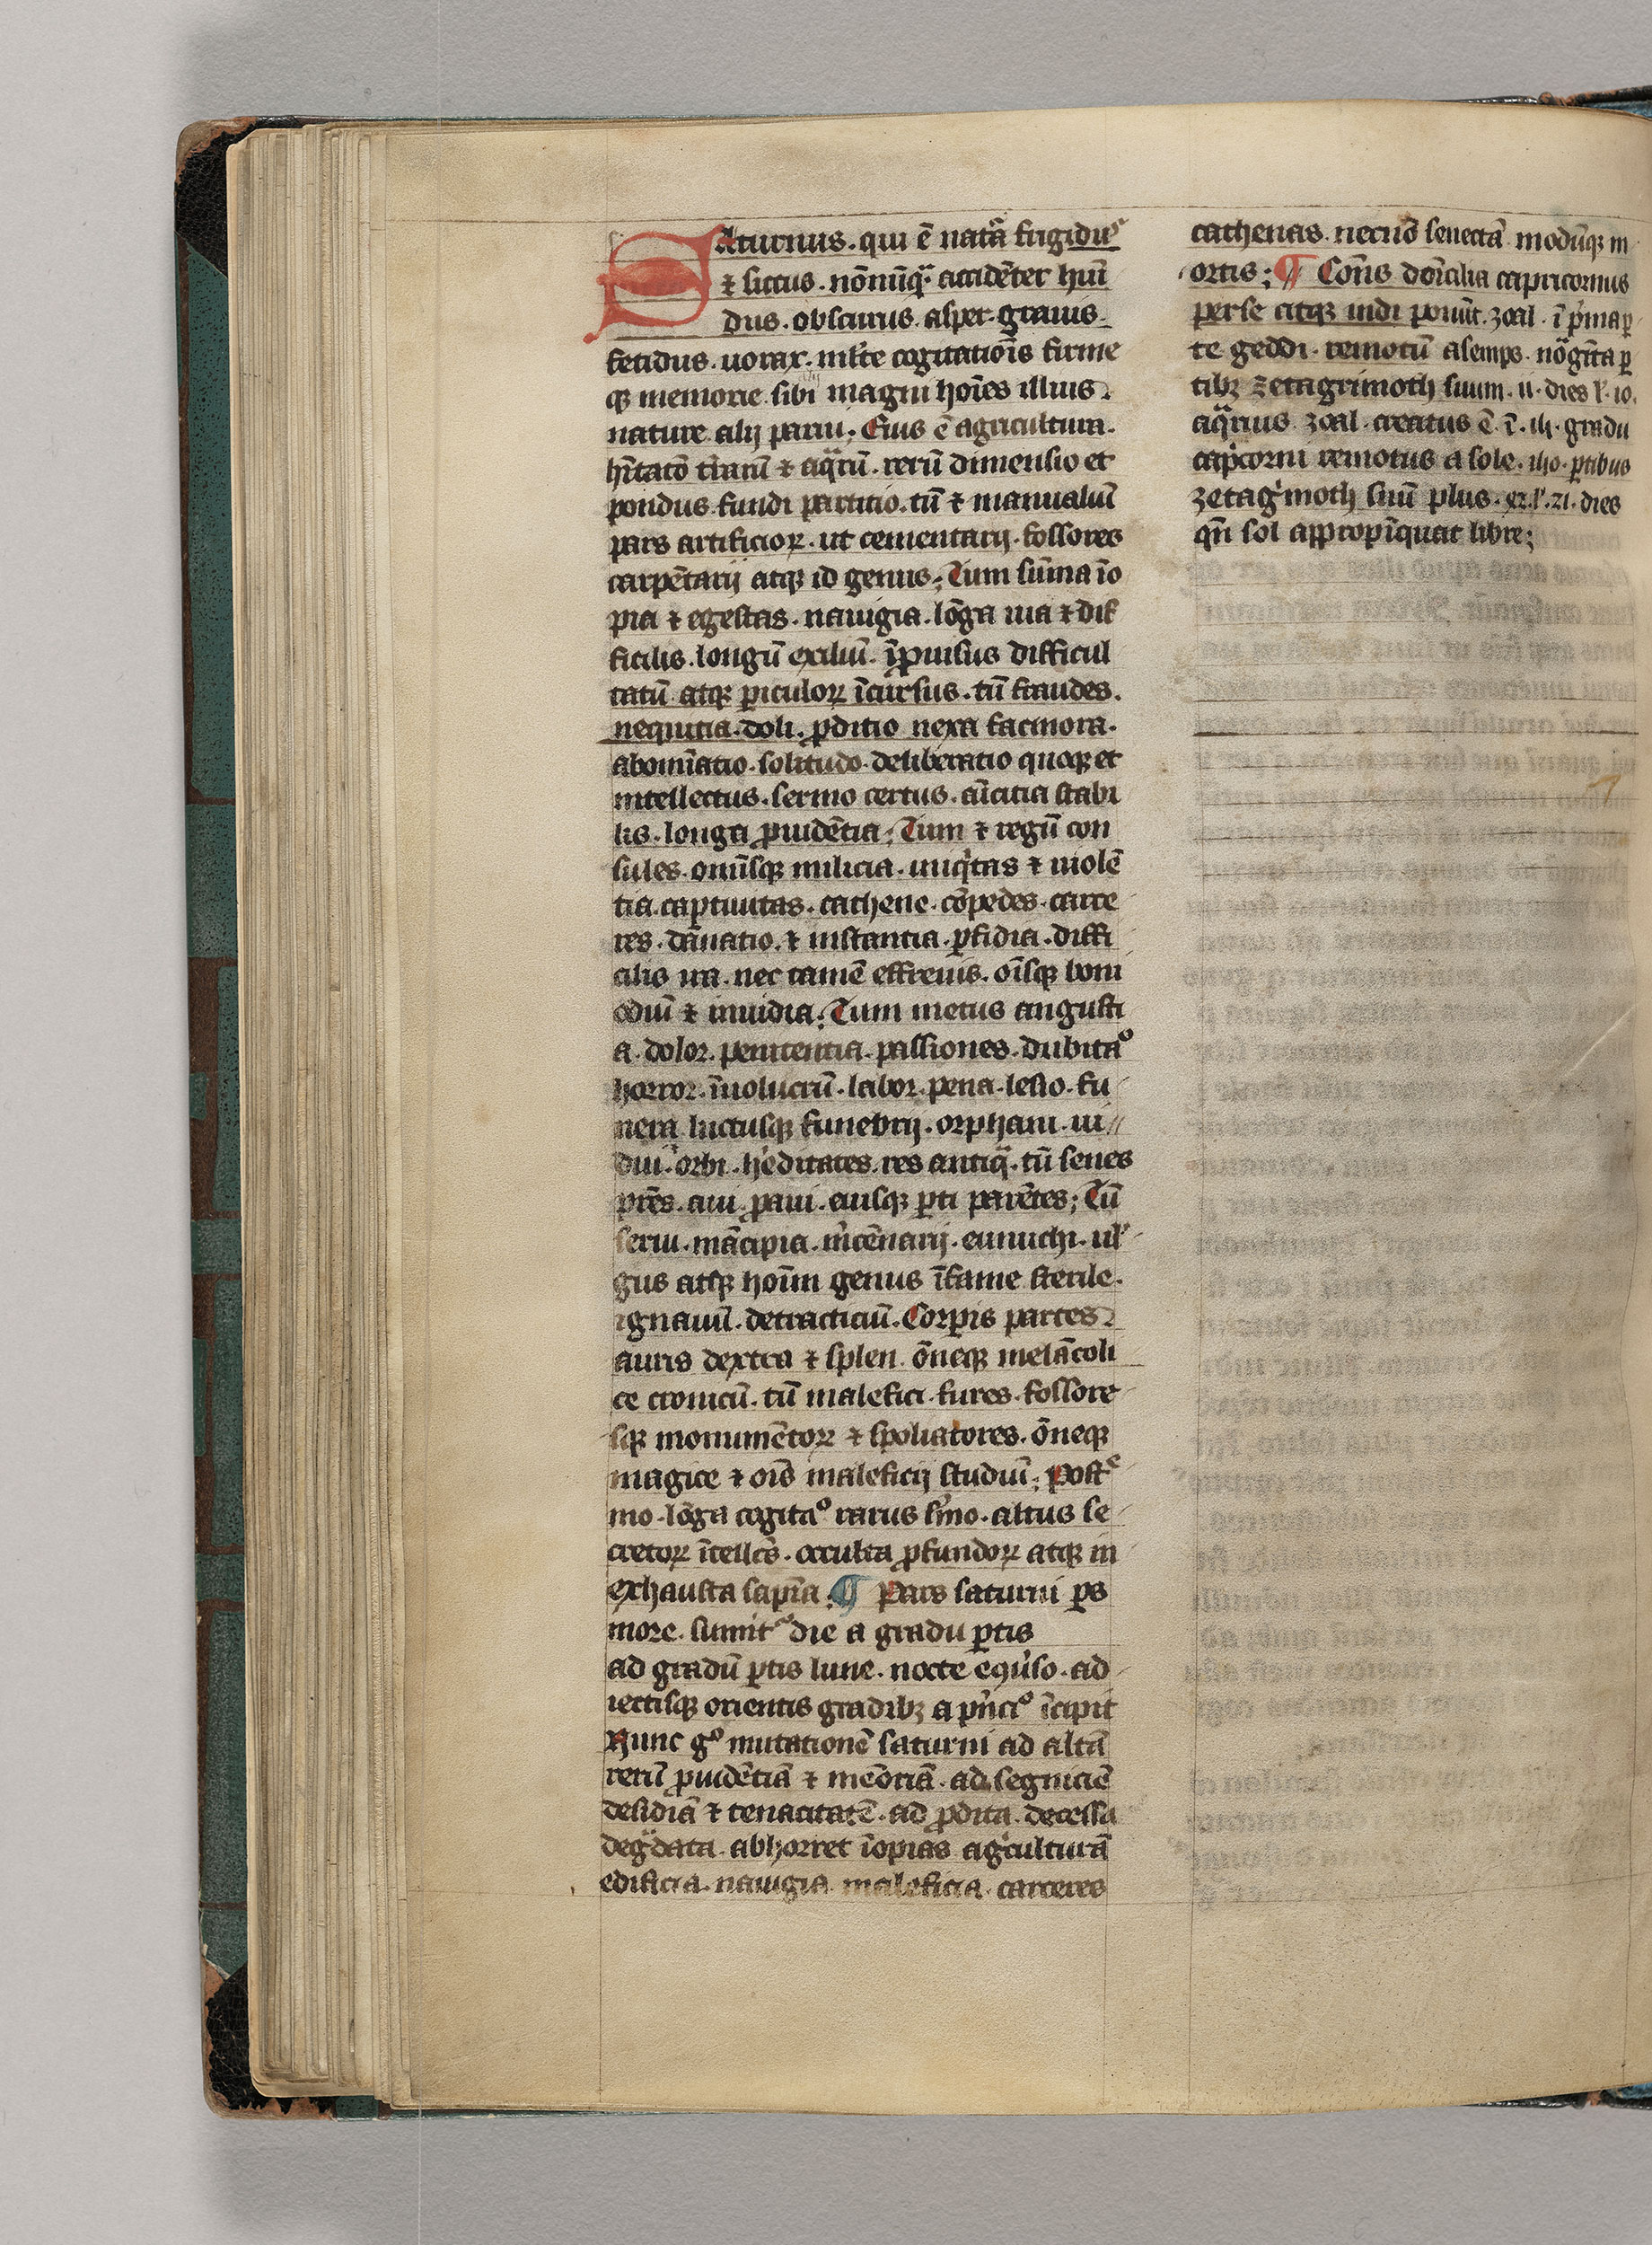 Saturnus. qui ē natā frigidꝰ
⁊ siccus. nōnūqᷓ accidēter hūi
dus. obscurus. asper. grauis.
fetidus. uorax. ml̄te cogitatiōīs firme
qꝫ memorie. sibi magni hoīes illius
nature alij pariū; Eius ē agricultura.
hītatō tr̄arū ⁊ aqᷓrū. rerū dimensio et
pondus. fundi partitio. tū ⁊ manualiū
pars artificioꝝ. ut cementarij. fossores
carpētarij atqꝫ id genus; Tum sūma īo
pia ⁊ egestas. nauigia. lōga uia ⁊ dif
ficilis. longū exiliū. īp̄uisus difficul
tatū atqꝫ ꝑiculoꝝ īcursus. tū fraudes.
nequitia. doli. ꝓditio nexa facinora.
abomīatio. solitudo. deliberatio quoqꝫ et
intellectus. sermo certus. amīcitia stabi
lis. longa ꝓuidētia; Tum ⁊ regū con
sules. omīsqꝫ milicia. iniqⁱtas ⁊ uiolē
tia. captiuitas. cathene. cōpedes. carce
res. dānatio. ⁊ instantia. ꝑfidia. diffi
cilis ira. nec tamē effrenis. oīsqꝫ boni
odiū ⁊ inuidia; Tum metus angusti
a. dolor. penitentia. passiones. dubitaᵒ
horror. īuolucrū. labor. pena. lesio. fu
nera luctusqꝫ funebrij. orphani. ui
dui. orbi. h'editates. res antiqᷓ. tū senes
pr̄es. aui. ꝓaui. eiusqꝫ ꝑti parētes; Tū
serui. mācipia. m'cēnarij. eunuchi. ul'
gus atqꝫ hoīm genus īfame sterile.
ignauū. detracticiū. Corꝑis partes
auris dextra ⁊ splen. ōneqꝫ melācoli
ce cronicū. tū malefici. fures. fossore
sqꝫ monumētoꝝ ⁊ spoliatores. ōneqꝫ
magice ⁊ oīs maleficij studiū; Postᵉ
mo. lōga cogitaᵒ rarus s'mo. altus se
cretoꝝ ītellc̄s. occulta ꝓfundoꝝ atqꝫ in
exhausta sapīa; ¶ Pars saturni ꝑs
more. sumitᵉ die a gradu ꝑtis
ad gradū ꝑtis lune. nocte eqⁱuso. ad
iectisqꝫ orientis gradibꝫ a pⁱnciᵒ īcipit
Hunc gᵒ mutationē saturni ad altā
rerū ꝓuidētiā ⁊ mēoriā. ad segniciē
desidiā ⁊ tenacitatē. ad ꝓdita. decessa
degᷓdata. abhorret īopias agⁱculturā
edificia. nauigia maleficia. carceres
cathenas. necnō senectā modūqꝫ m
ortis; ¶ Con̄s domīcilia capricornus
perse atqꝫ indi ponūt. zoal. ī pⁱma ꝑ
te geddi. remotū a semps. nōgīta ꝑ
tibꝫ zetagrimoth suum. ii. dies l'. io.
aqᷓrius zoal. creatus ē ī. iij. gradu
capⁱcorni remotus a sole. iho. ꝑtibus
zetagⁱmoth suū plus. xz. l'. zi. dies
qn̄ sol appropīquat libre;